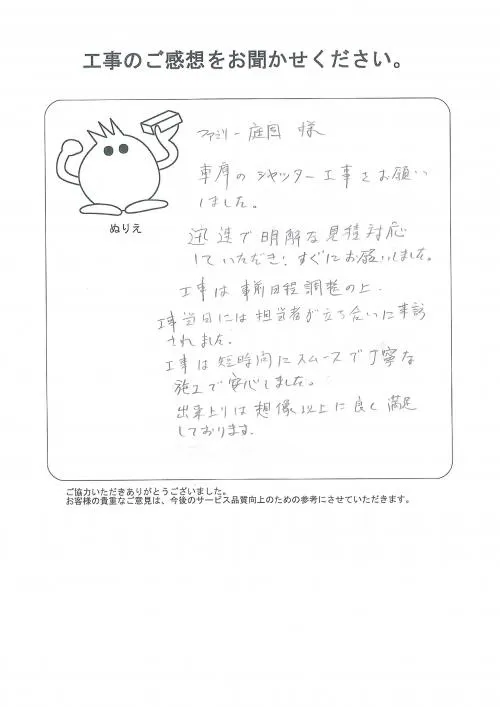 工事のご感想をお聞かせください。
ファミリー庭园 様
車庫のシャッター工事をお願い
しました。
迅速で明解な見積対応
していただき、すぐにお願いしました。
工事は事前日程調整の上、
工事当日には担当者が立ち合いに来訪
されました。
工事は短時間にスムースで丁寧な
施工で安心しました。
出来上りは想像以上に良く満足
しております。
ぬりえ
ご協力いただきありがとうございました。
お客様の貴重なご意見は、今後のサービス品質向上のための参考にさせていただきます。